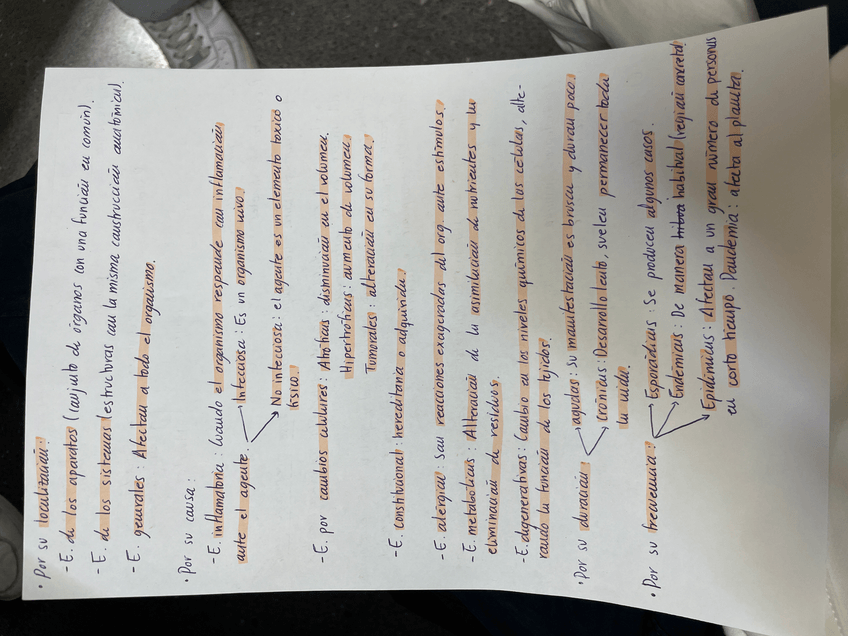 • Por su localización:
- E. de los aparatos (conjunto de órganos con una función en común).
- E. de los sistemas (estructuras con la misma construcción anatómica).
- E. generales: Afectan a todo el organismo.
• Por su causa:
- E. inflamatoria: Cuando el organismo responde con inflamación
ante el agente. → Infecciosa: Es un organismo vivo.
→ No infecciosa: el agente es un elemento tóxico o
físico.
- E. por cambios celulares: Atróficas: disminución en el volumen.
Hipertróficas: aumento de volumen.
Tumorales: alteración en su forma.
- E. constitucional: hereditaria o adquirida.
- E. alérgica: Son reacciones exageradas del org. ante estímulos.
- E. metabólicas: Alteración de la asimilación de nutrientes y la
eliminación de residuos.
- E. degenerativas: Cambio en los niveles químicos de las células, alte-
rando la función de los tejidos.
• Por su duración: → agudas: su manifestación es brusca y duran poco.
→ crónicas: Desarrollo lento, suelen permanecer toda
la vida.
• Por su frecuencia: → Esporádicas: Se producen algunos casos.
→ Endémicas: De manera habitual (región concreta)
→ Epidémicas: Afectan a un gran número de personas
en corto tiempo. Pandemia: afecta al planeta.